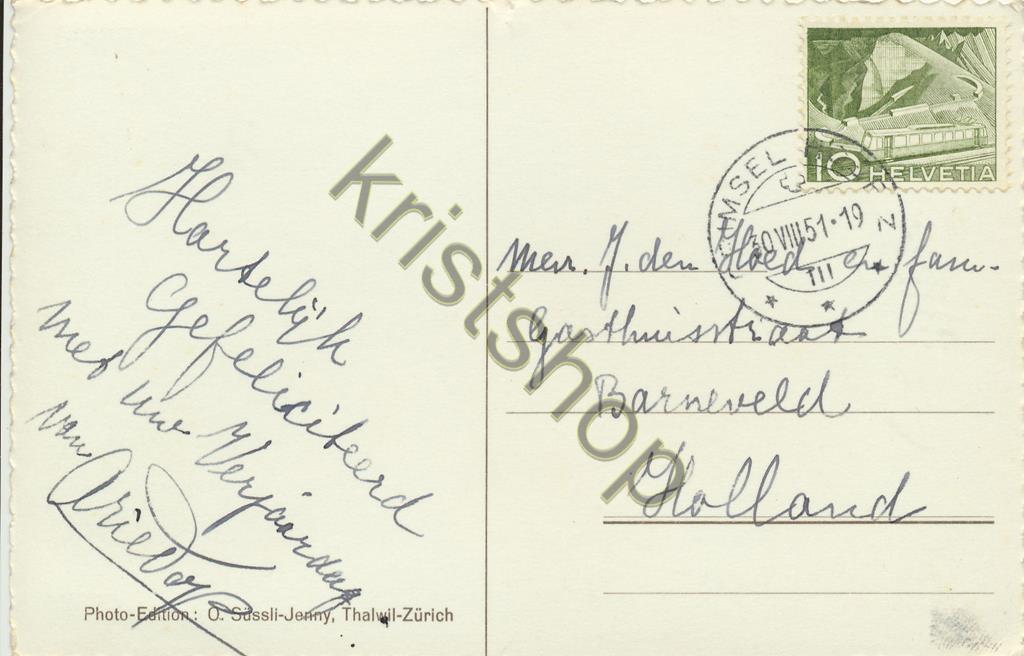 Hartelijk
Gefeliciteerd
met uw Verjaardag
van
10 HELVETIA
30 VIII 51 • 19
Mevr. J. den Hoed en fam.
Gasthuisstraat
Barneveld
Holland
kristshop
Photo-Edition: O. Süssli-Jenny, Thalwil-Zürich